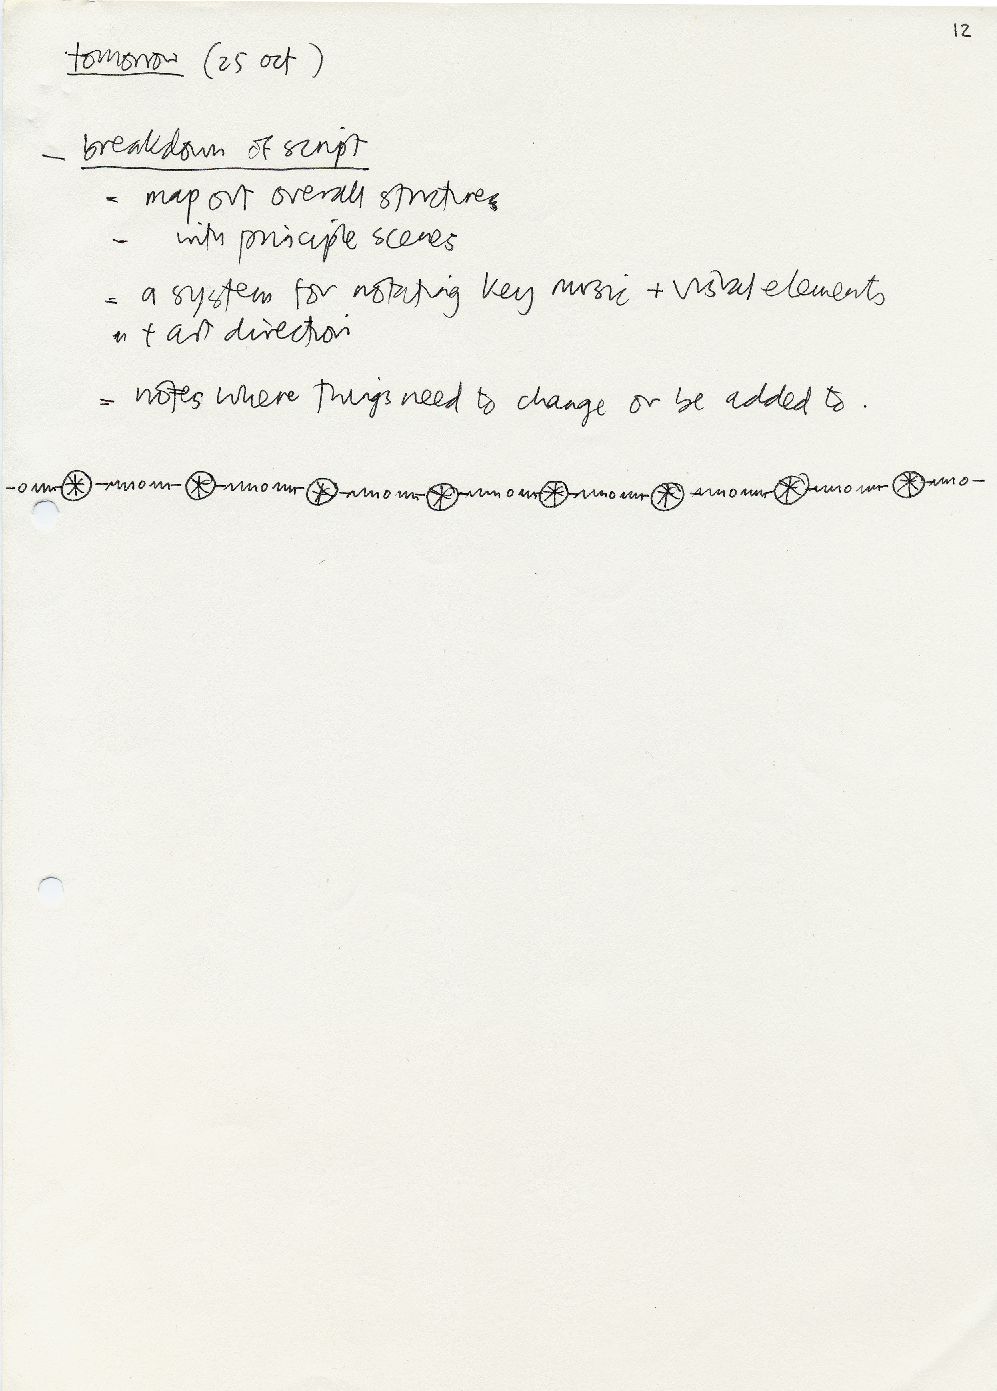 12
tomorrow (25 oct )
- breakdown of script
= map out overall structures
- with principle scenes
= a system for notating key music + visual elements
" + art direction
= notes where things need to change or be added to .